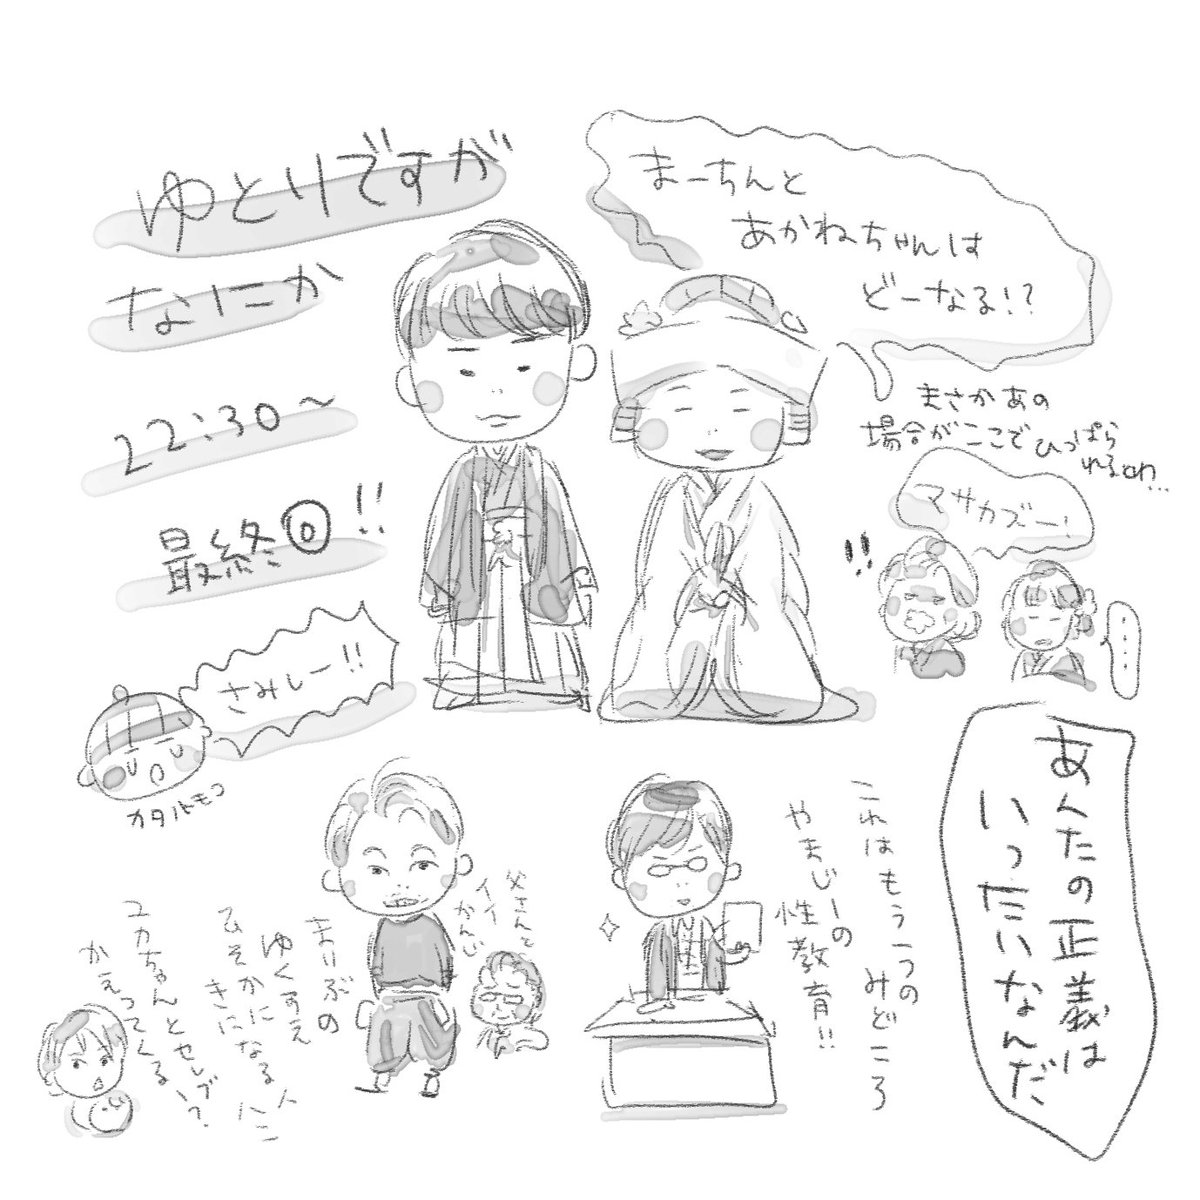 ゆとりですが
なにか
22:30～
最終回!!
まーちんと
あかねちゃんは
どーなる!?
まさかあの
場合がここで
ひっぱら
れるとわ…
マサカズー!
!!
・・・・
さみしー!!
カタルトモコ
あんたの正義は
いったいなんだ
これはもう一つの
みどころ
やまじーの
性教育!!
父さんと
イイ
かんじ
まりぶの
ゆくすえ
ひそかに
きになる
ユカちゃんとセレブ?
かえってくる、